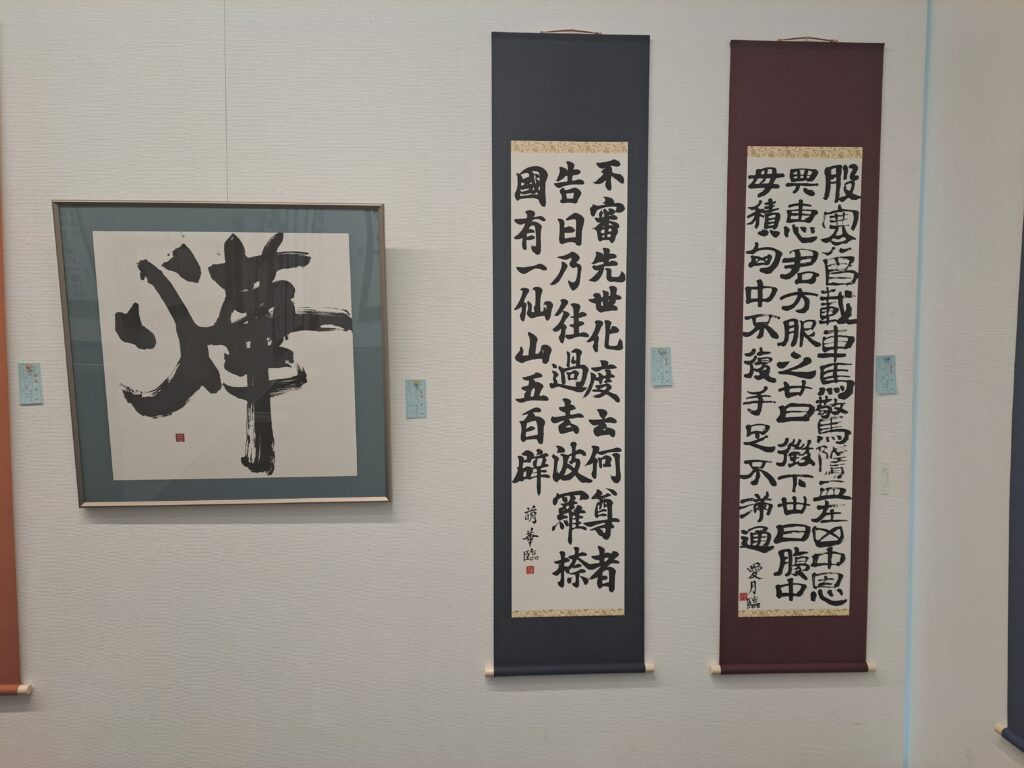 燁
不審先世化度云何尊者
告曰乃往過去波羅㮈
國有一仙山五百辟
萌華臨
股寒曾載車馬驚隋血在凶中恩
惠君方服之廿日徵下卅日腹中
毋積匈中不復手足不滿通
愛月臨